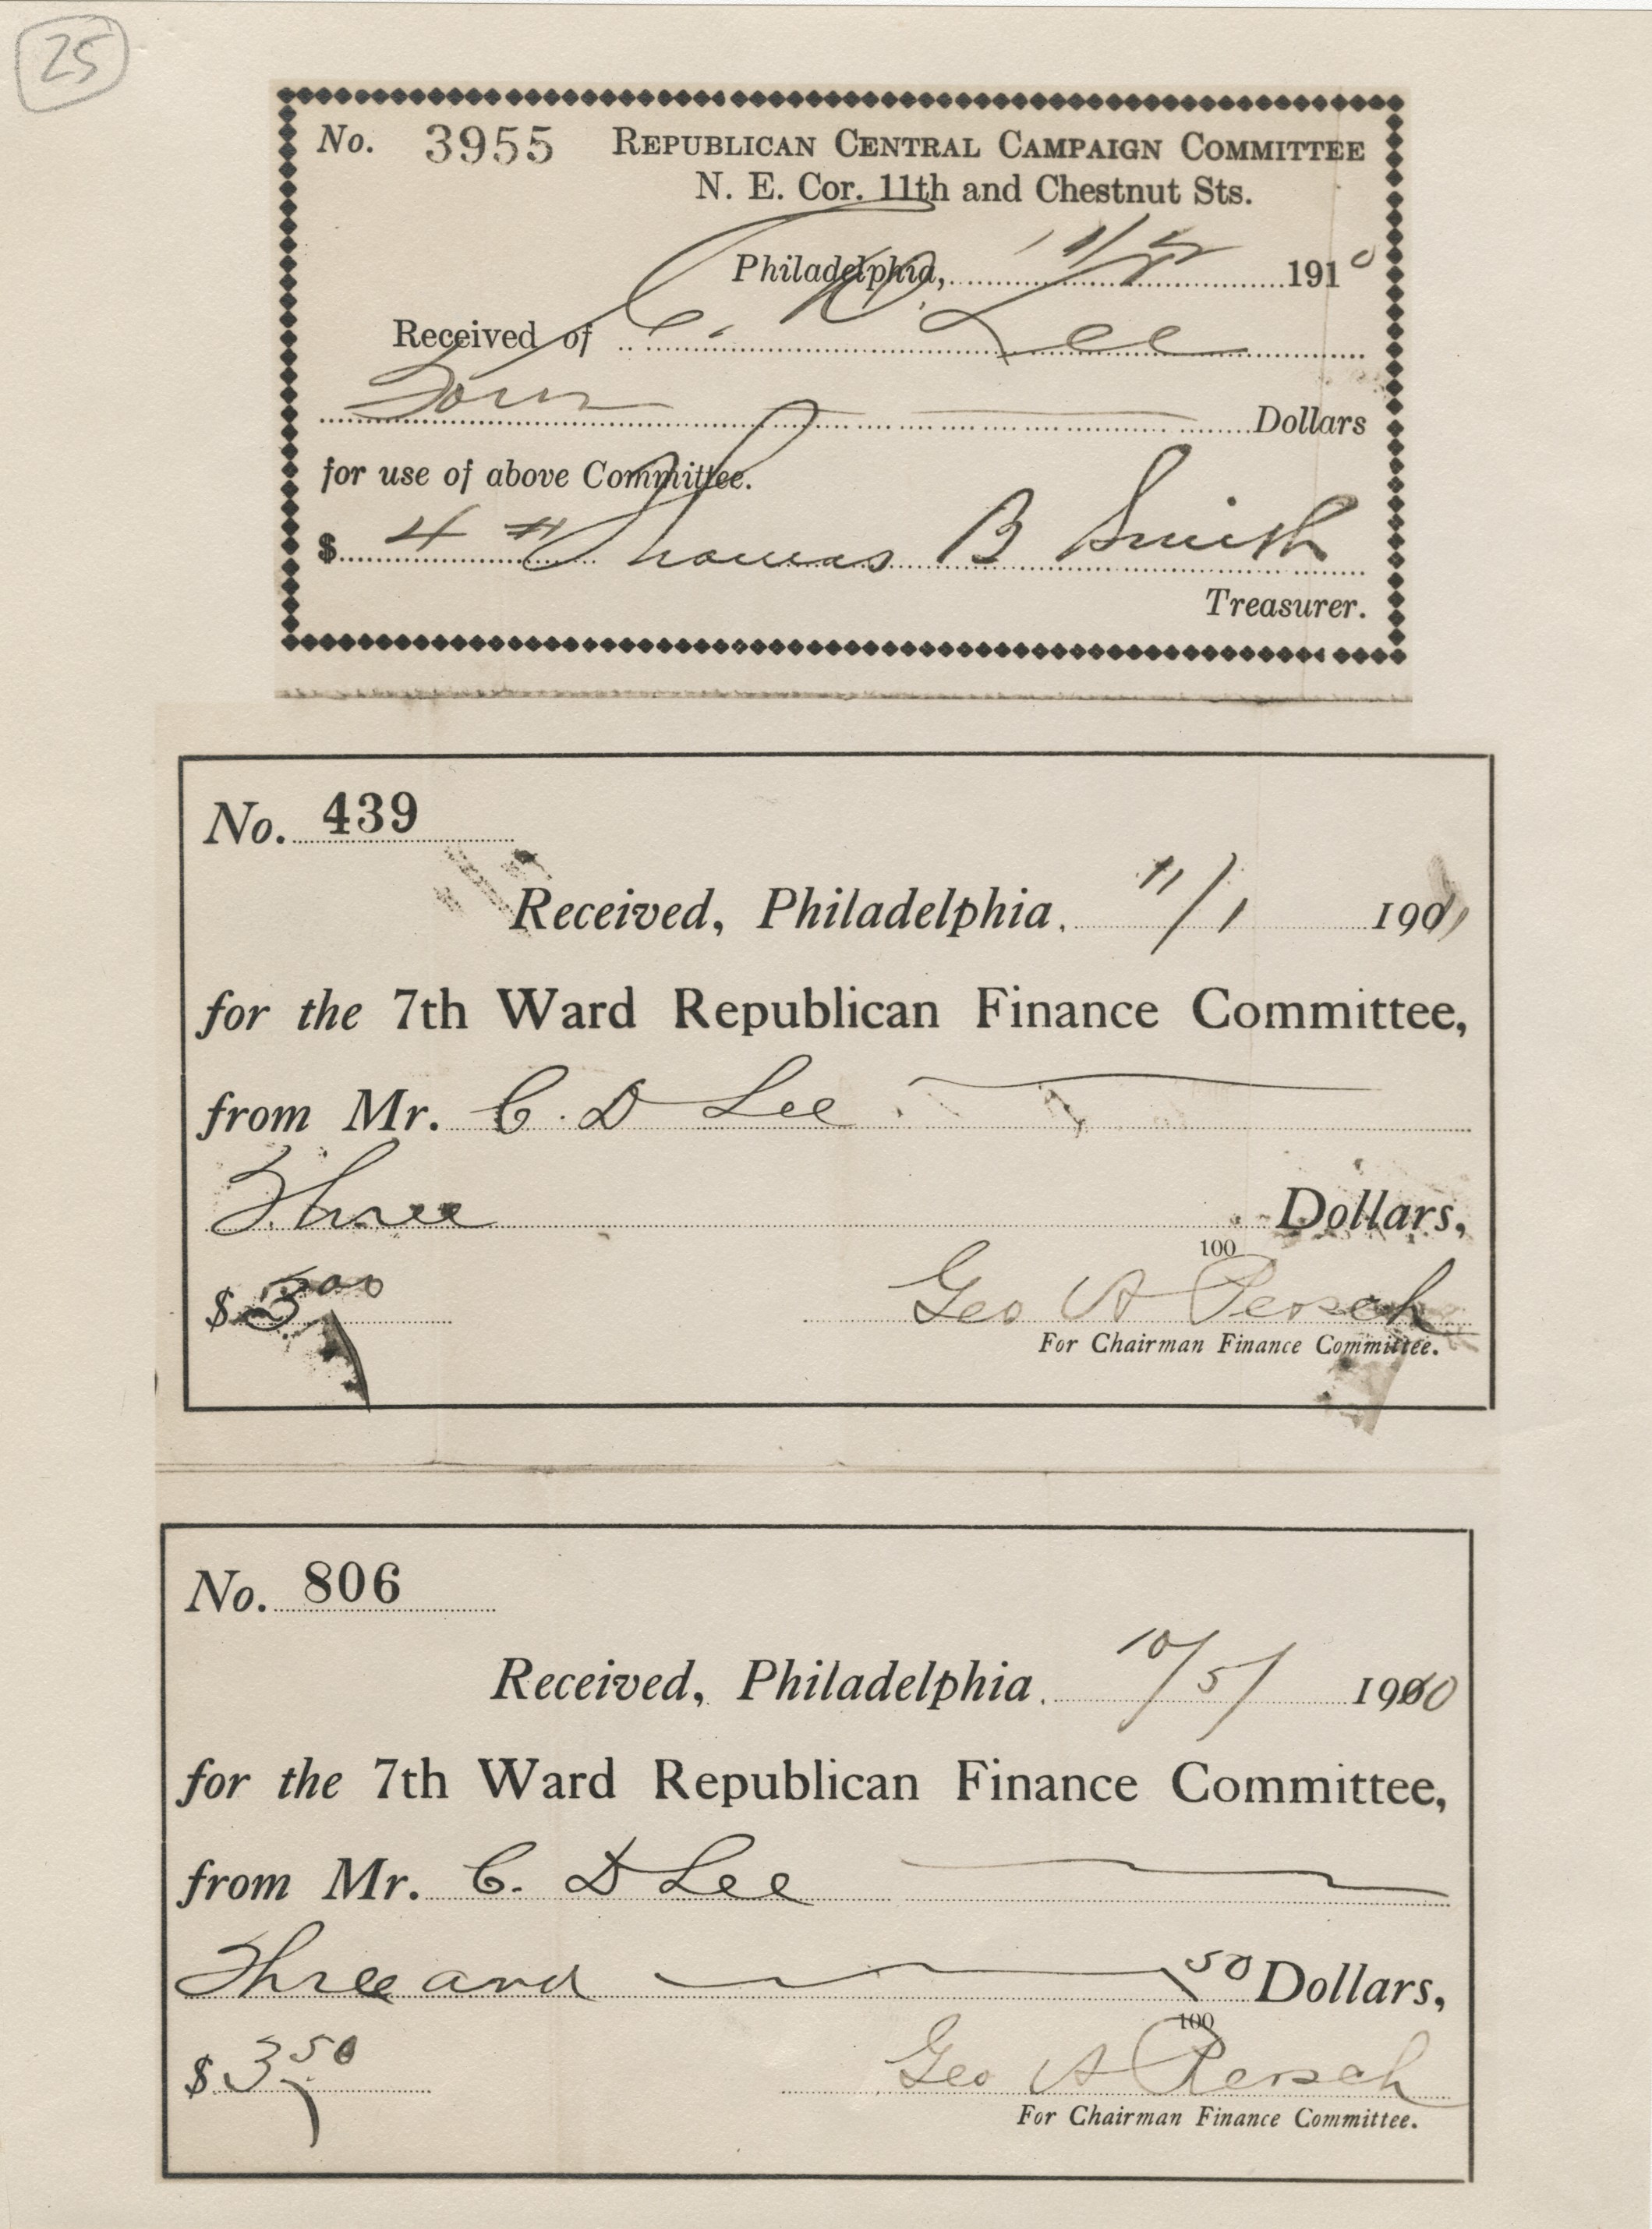 25
No. 3955 REPUBLICAN CENTRAL CAMPAIGN COMMITTEE
N. E. Cor. 11th and Chestnut Sts.
Philadelphia, 11/5 1910
Received of C. D. Lee
Four Dollars
for use of above Committee.
$ 4 Thomas B Smith
Treasurer.
No. 439
Received, Philadelphia. 11/1 190
for the 7th Ward Republican Finance Committee,
from Mr. C. D Lee
Three Dollars,
100
$ 3 00 Geo A Persch
For Chairman Finance Committee.
No. 806
Received, Philadelphia. 10/5/ 1900
for the 7th Ward Republican Finance Committee,
from Mr. C. D Lee
Three and 50 Dollars,
100
$ 3 50 Geo A Persch
For Chairman Finance Committee.